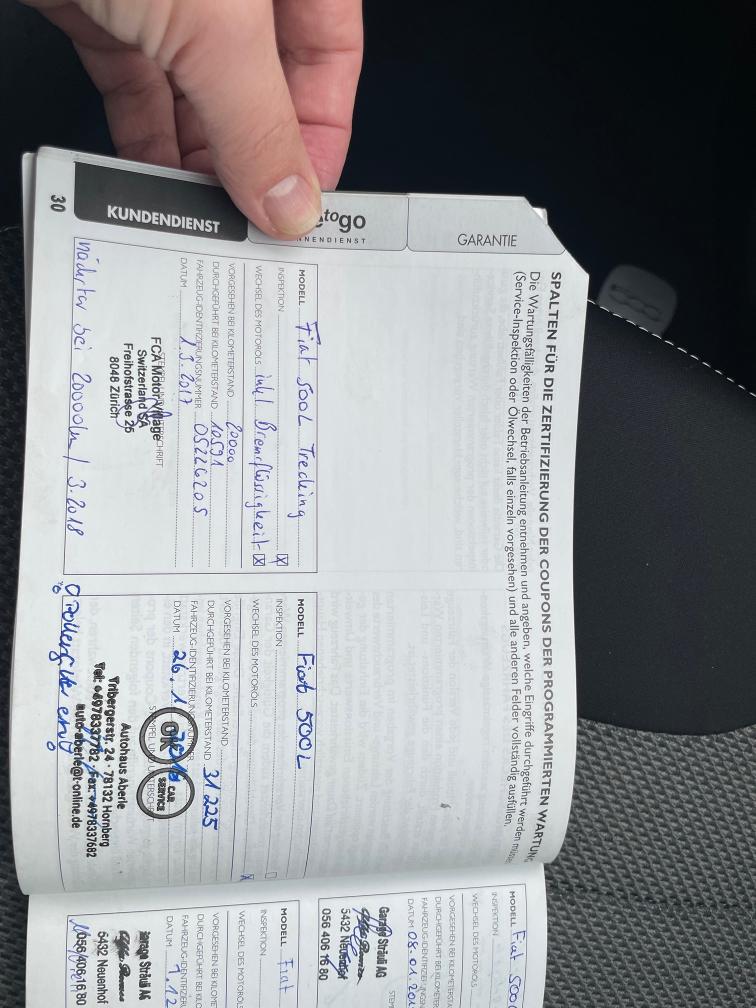 30
KUNDENDIENST
togo
NENDIENST
GARANTIE
SPALTEN FÜR DIE ZERTIFIZIERUNG DER COUPONS DER PROGRAMMIERTEN WARTUNG
Die Wartungsfälligkeiten der Betriebsanleitung entnehmen und angeben, welche Eingriffe durchgeführt werden müssen
(Service-Inspektion oder Ölwechsel, falls einzeln vorgesehen) und alle anderen Felder vollständig ausfüllen.
MODELL Fiat 500L Trecking
INSPEKTION X
WECHSEL DES MOTORÖLS inkl Bremsflüssigkeit X
VORGESEHEN BEI KILOMETERSTAND 20000
DURCHGEFÜHRT BEI KILOMETERSTAND 10591
FAHRZEUG-IDENTIFIZIERUNGSNUMMER 05226205
DATUM 1.3.2017
FCA Motor Village
Switzerland SA
Freihofstrasse 25
8048 Zürich
bei 20000km / 3.2018
MODELL Fiat 500L
INSPEKTION
WECHSEL DES MOTORÖLS X
VORGESEHEN BEI KILOMETERSTAND
DURCHGEFÜHRT BEI KILOMETERSTAND 31225
FAHRZEUG-IDENTIFIZIERUN NUMMER
DATUM 26.1
OK
CAR
SERVICE
Autohaus Aberle
Tribergerstr. 24 · 78132 Hornberg
Tel: +4978337782 Fax: +4978337682
auto-aberle@t-online.de
Pollenfilter
MODELL Fiat 500
INSPEKTION
WECHSEL DES MOTORÖLS
VORGESEHEN BEI KILOMETERS
DURCHGEFÜHRT BEI KILOMETER
FAHRZEUG-IDENTIFIZIERUNGS
DATUM 08.01.20
STEM
Garage Sträuli AG
5432 Neuenhof
056 406 16 80
MODELL Fiat
INSPEKTION
WECHSEL DES MOTORÖL
VORGESEHEN BEI KILO
DURCHGEFÜHRT BEI KILO
FAHRZEUG-IDENTIFI
DATUM 1.12
Garage Sträuli AG
5432 Neuenhof
056 406 16 80